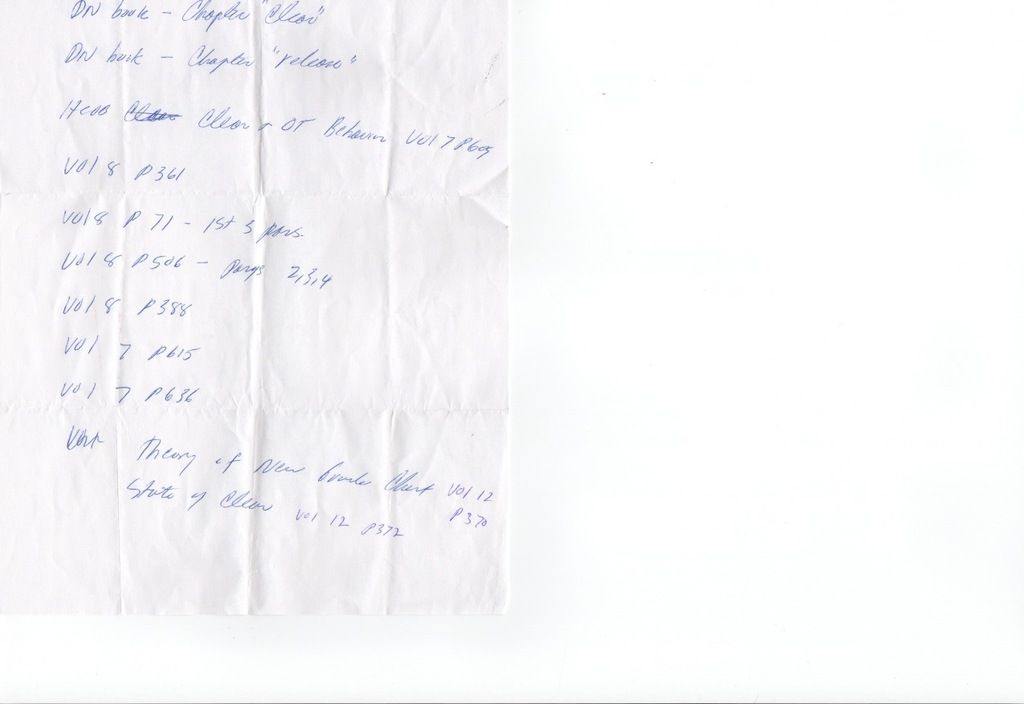 DN book - Chapter "Clear"
DN book - Chapter "release"
HCOB Clear & OT Behavior Vol 7 P605
Vol 8 P361
Vol 8 P 71 - 1st 3 pars.
Vol 8 P506 - pargs 2,3,4
Vol 8 P388
Vol 7 P615
Vol 7 P636
Theory of New Grade Chart Vol 12 P370
State of Clear Vol 12 P372